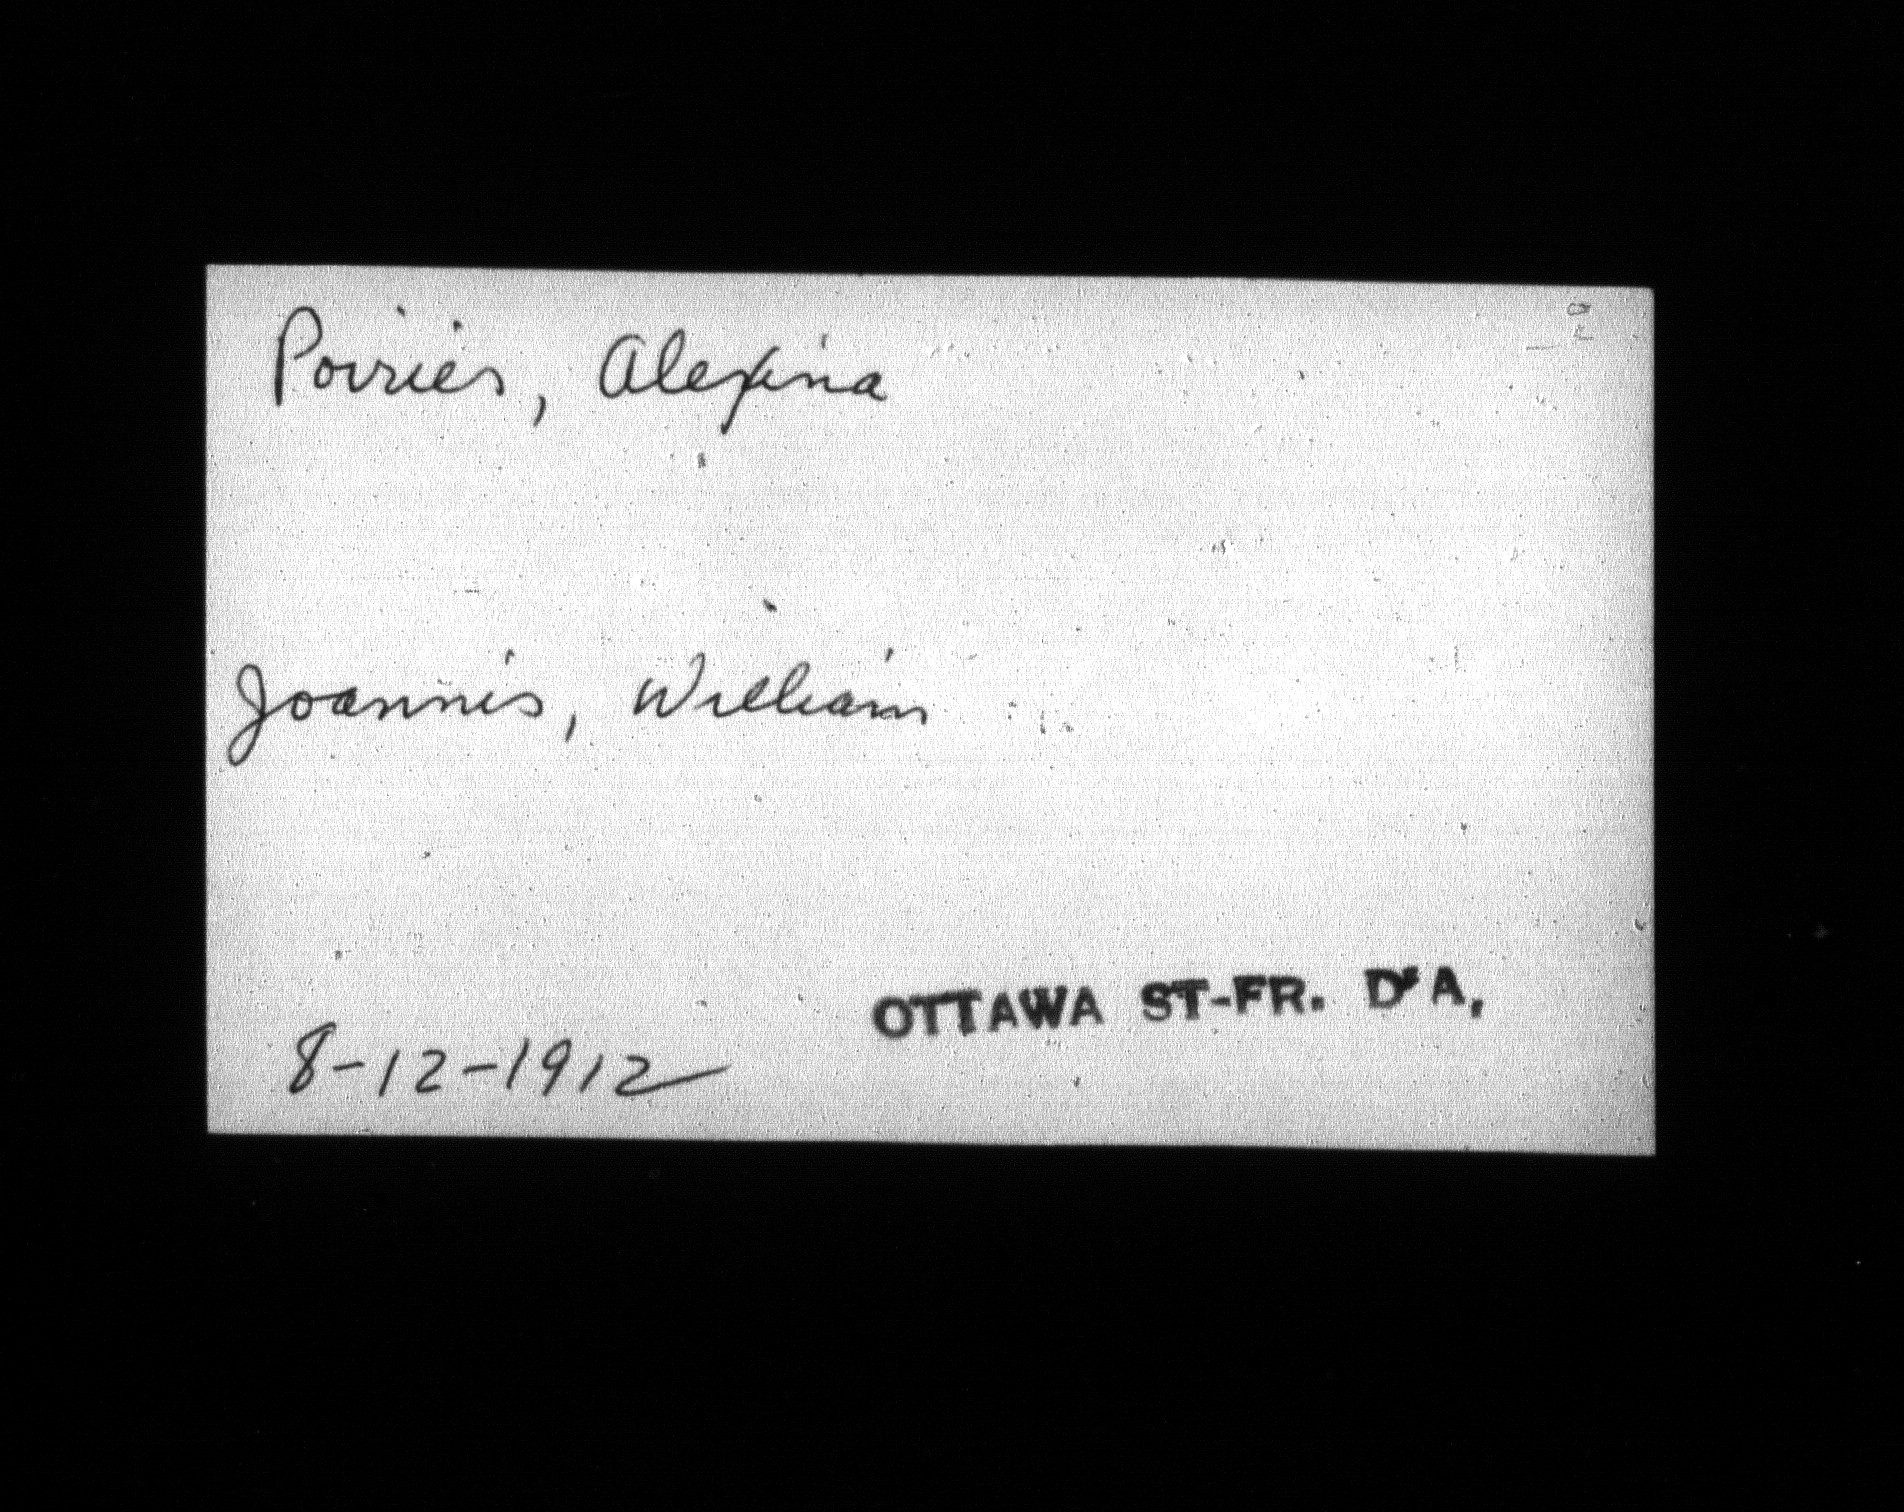 Poirier, Alexina
Joannis, William
OTTAWA ST-FR. D'A.
8-12-1912